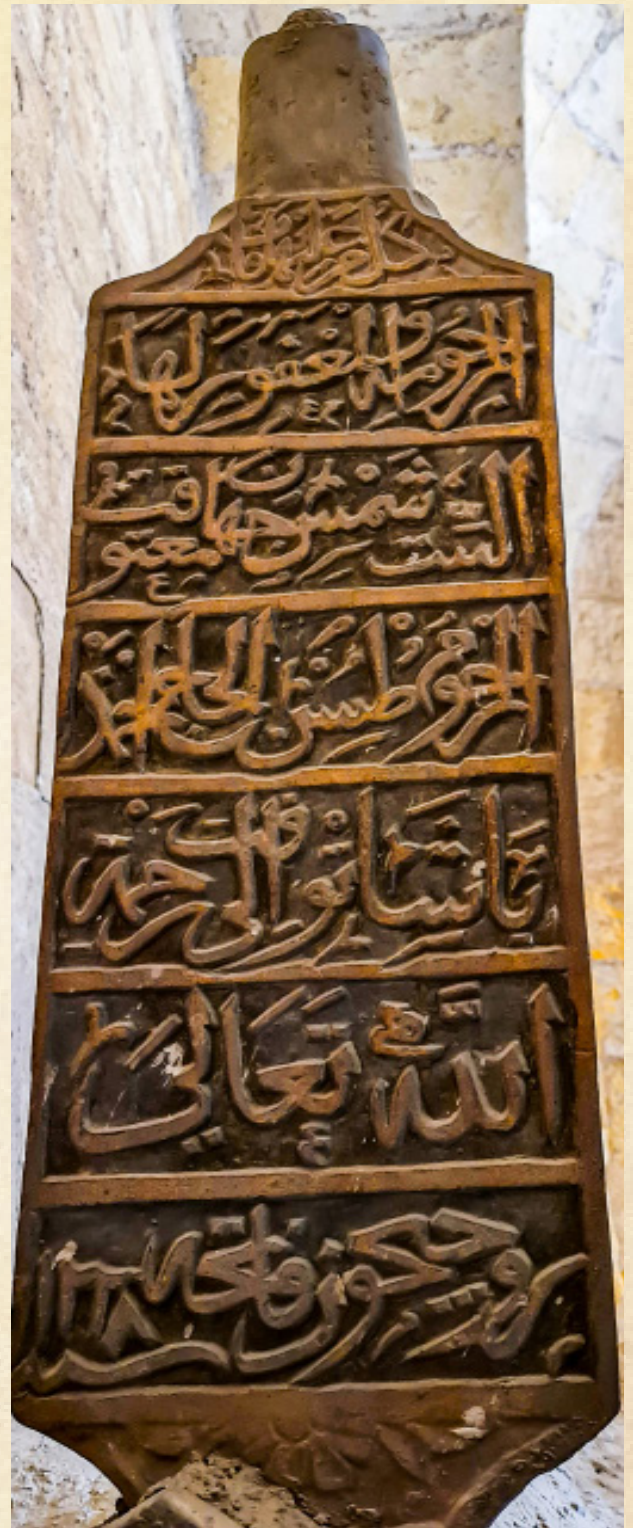 كل من عليها فان
المرحومة والمغفور لها
الست شمس جهان معتوقت
المرحوم طسن الحاج
باشا توفت الى رحمة
الله تعالى
روحيچون فاتحه سنه